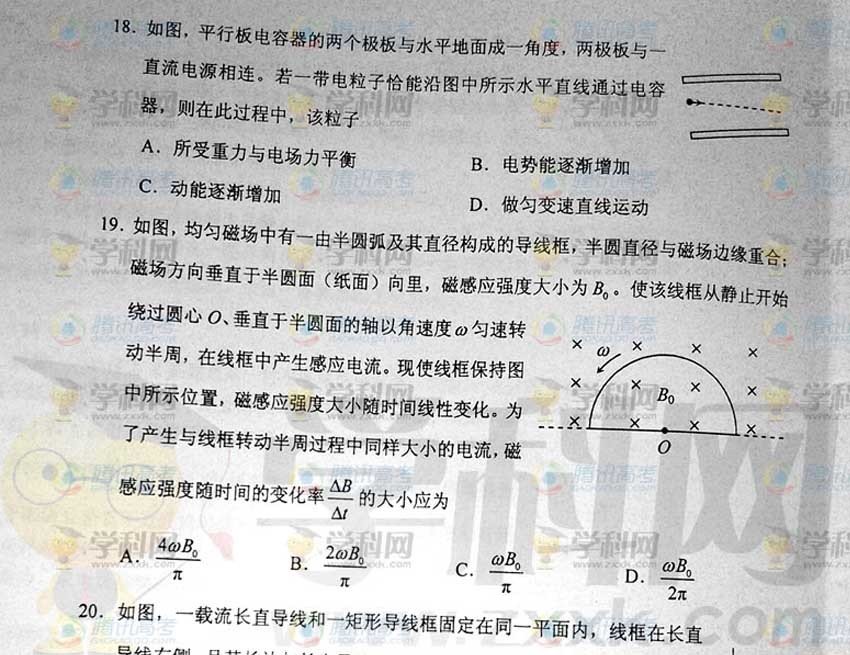 18. 如图，平行板电容器的两个极板与水平地面成一角度，两极板与一
直流电源相连。若一带电粒子恰能沿图中所示水平直线通过电容
器，则在此过程中，该粒子
A．所受重力与电场力平衡
B．电势能逐渐增加
C．动能逐渐增加
D．做匀变速直线运动
19. 如图，均匀磁场中有一由半圆弧及其直径构成的导线框，半圆直径与磁场边缘重合；
磁场方向垂直于半圆面（纸面）向里，磁感应强度大小为 B₀。使该线框从静止开始
绕过圆心 O、垂直于半圆面的轴以角速度 ω 匀速转
动半周，在线框中产生感应电流。现使线框保持图
中所示位置，磁感应强度大小随时间线性变化。为
了产生与线框转动半周过程中同样大小的电流，磁
感应强度随时间的变化率 ΔB/Δt 的大小应为
ω
B₀
O
A． 4ωB₀/π
B． 2ωB₀/π
C． ωB₀/π
D． ωB₀/2π
20. 如图，一载流长直导线和一矩形导线框固定在同一平面内，线框在长直
学科网
www.zxxk.com
腾讯高考